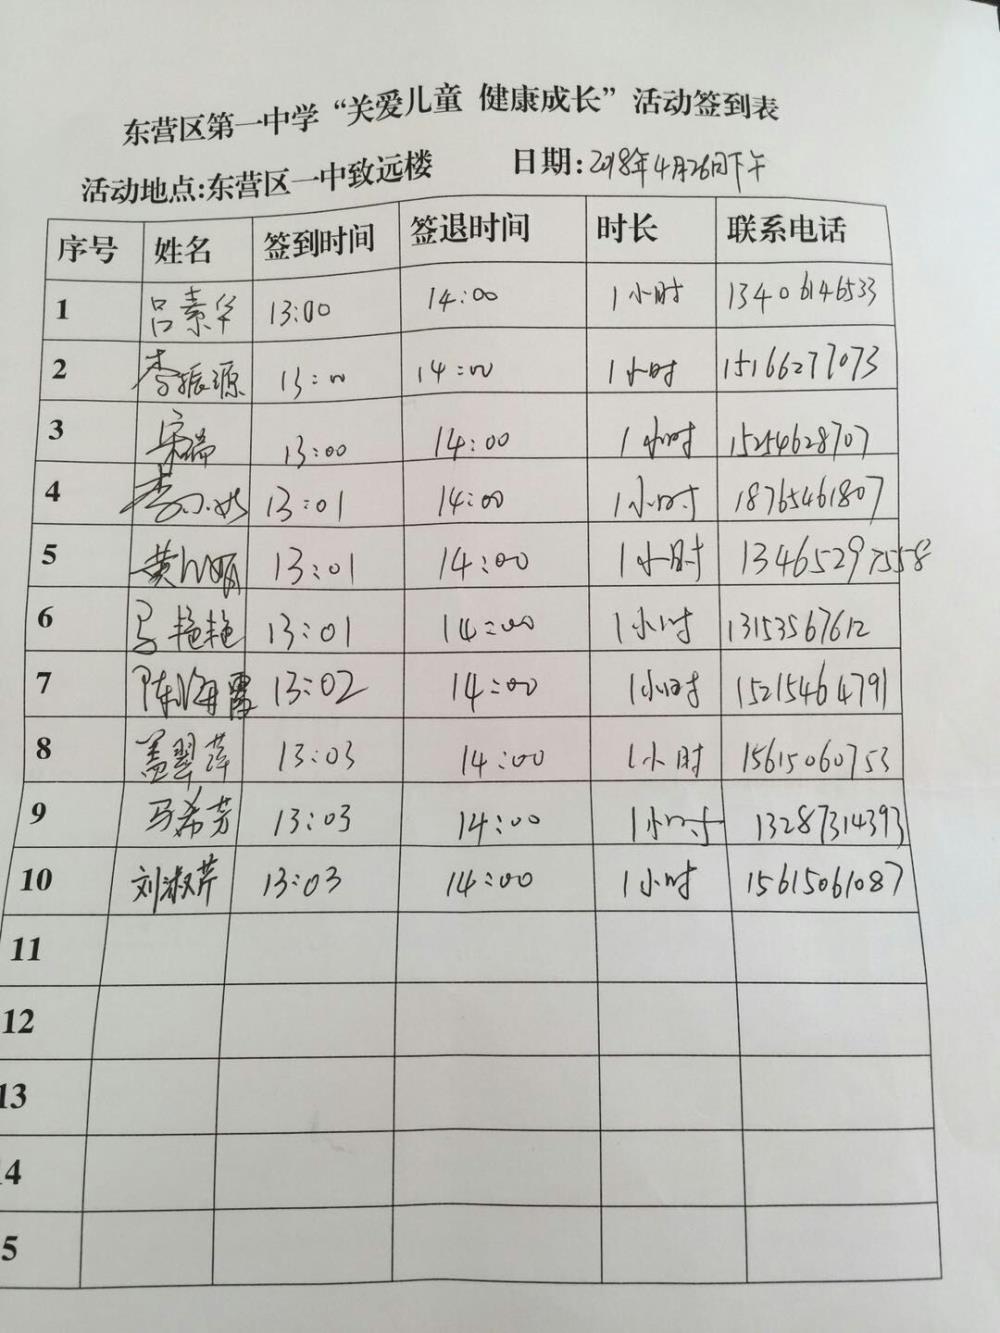 东营区第一中学“关爱儿童 健康成长”活动签到表
活动地点:东营区一中致远楼 日期:2018年4月26日下午
序号 姓名 签到时间 签退时间 时长 联系电话
1 吕素华 13:00 14:00 1小时 13406146533
2 李振源 13:00 14:00 1小时 15166277073
3 宋瑞 13:00 14:00 1小时 15254628707
4 李 13:01 14:00 1小时 18765461807
5 黄 13:01 14:00 1小时 13465297558
6 马艳艳 13:01 14:00 1小时 13153567612
7 陈海霞 13:02 14:00 1小时 15215464791
8 盖翠萍 13:03 14:00 1小时 15615060753
9 马希芳 13:03 14:00 1小时 13287314393
10 刘淑芹 13:03 14:00 1小时 15615061087
11
12
13
14
5